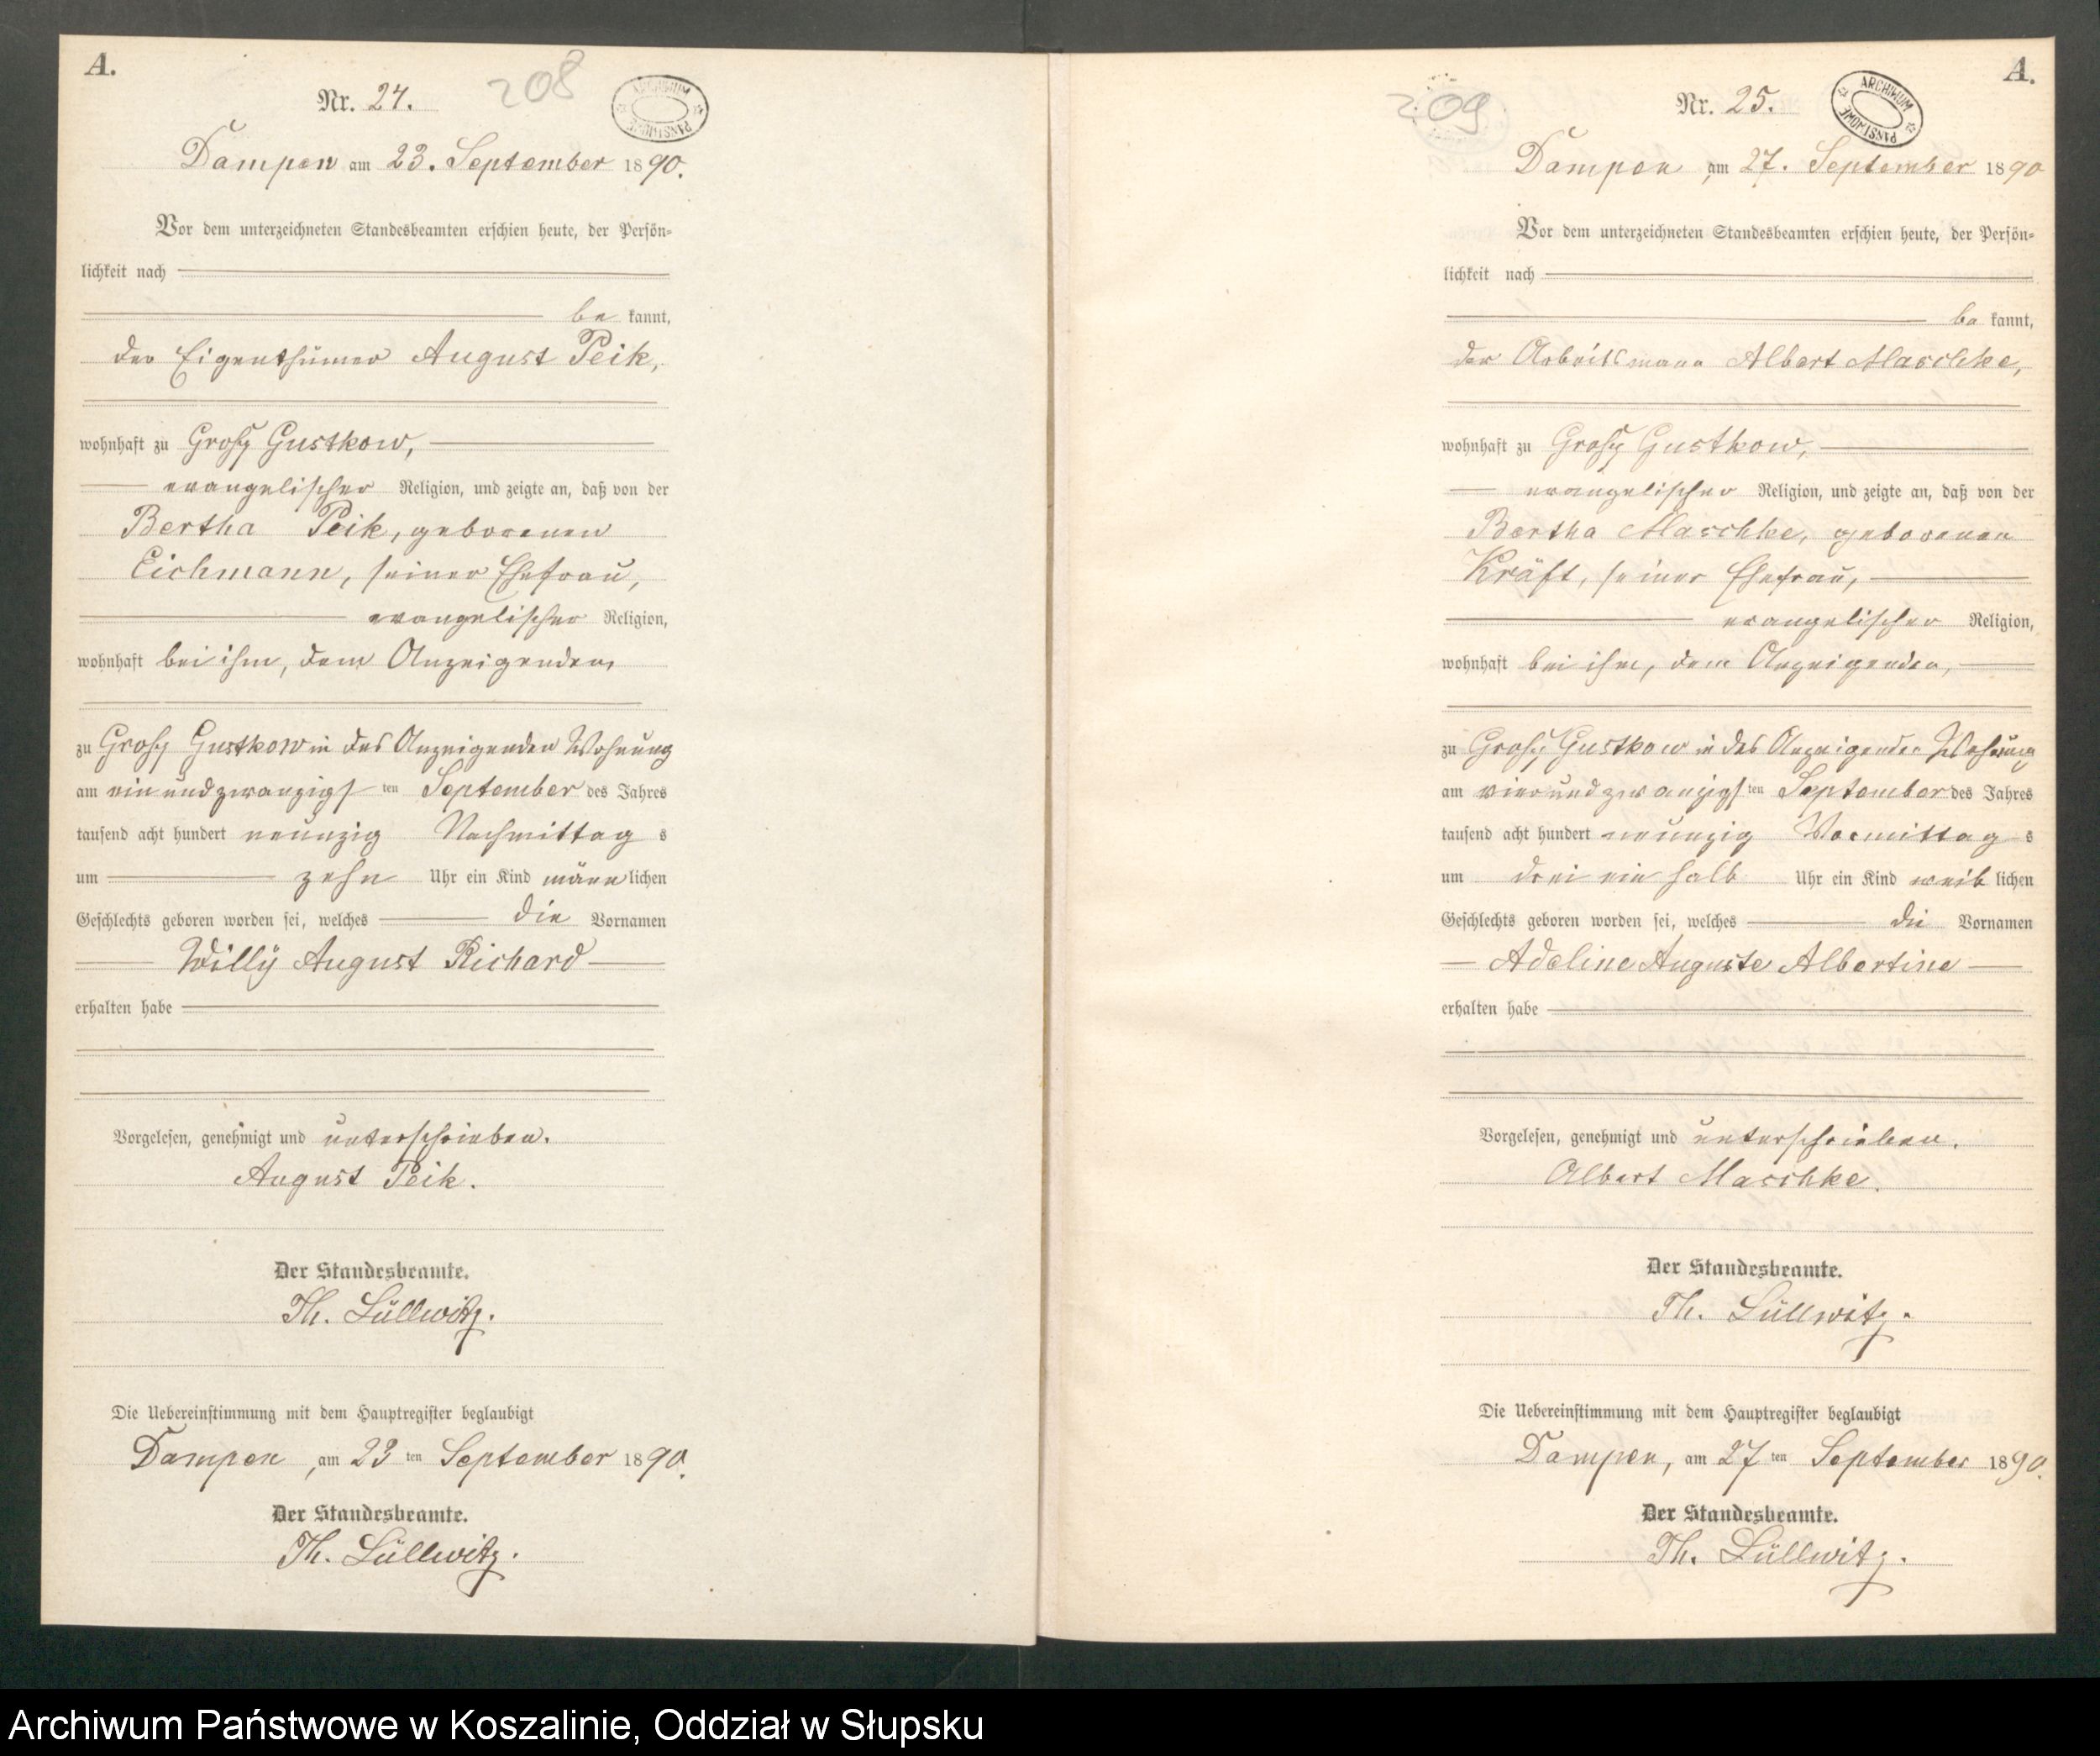 A.
Nr. 24.
208
ARCHIWUM PAŃSTWOWE
Dampen am 23. September 1890.
Vor dem unterzeichneten Standesbeamten erschien heute, der Persön-
lichkeit nach
be kannt,
der Eigenthümer August Peik,
wohnhaft zu Groß Gustkow,
evangelischer Religion, und zeigte an, daß von der
Bertha Peik, geborenen
Eichmann, seiner Ehefrau,
evangelischer Religion,
wohnhaft bei ihm, dem Anzeigenden,
zu Groß Gustkow in des Anzeigenden Wohnung
am ein und zwanzigs ten September des Jahres
tausend acht hundert neunzig Nachmittag s
um zehn Uhr ein Kind männ lichen
Geschlechts geboren worden sei, welches die Vornamen
Willÿ August Richard
erhalten habe
Vorgelesen, genehmigt und unterschrieben.
August Peik.
Der Standesbeamte.
Th. Lüllwitz.
Die Uebereinstimmung mit dem Hauptregister beglaubigt
Dampen, am 23 ten September 1890.
Der Standesbeamte.
Th. Lüllwitz.
A.
209
Nr. 25.
ARCHIWUM PAŃSTWOWE
Dampen, am 27. September 1890
Vor dem unterzeichneten Standesbeamten erschien heute, der Persön-
lichkeit nach
be kannt,
der Arbeitsmann Albert Maschke,
wohnhaft zu Groß Gustkow,
evangelischer Religion, und zeigte an, daß von der
Bertha Maschke, geborenen
Kräft, seiner Ehefrau,
evangelischer Religion,
wohnhaft bei ihm, dem Anzeigenden,
zu Groß Gustkow in des Anzeigenden Wohnung
am vier und zwanzigs ten September des Jahres
tausend acht hundert neunzig Vormittag s
um drei ein halb Uhr ein Kind weib lichen
Geschlechts geboren worden sei, welches die Vornamen
Adeline Auguste Albertine
erhalten habe
Vorgelesen, genehmigt und unterschrieben.
Albert Maschke.
Der Standesbeamte.
Th. Lüllwitz.
Die Uebereinstimmung mit dem Hauptregister beglaubigt
Dampen, am 27 ten September 1890.
Der Standesbeamte.
Th. Lüllwitz.
Archiwum Państwowe w Koszalinie, Oddział w Słupsku